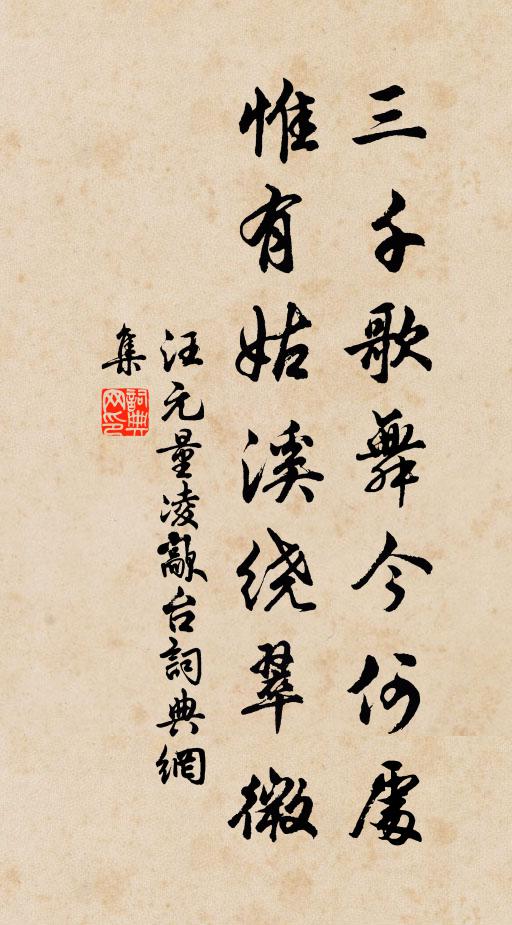 三千歌舞今何處
惟有姑溪绕翠微
汪元量凌歊台詞典網
集
詞典
网印